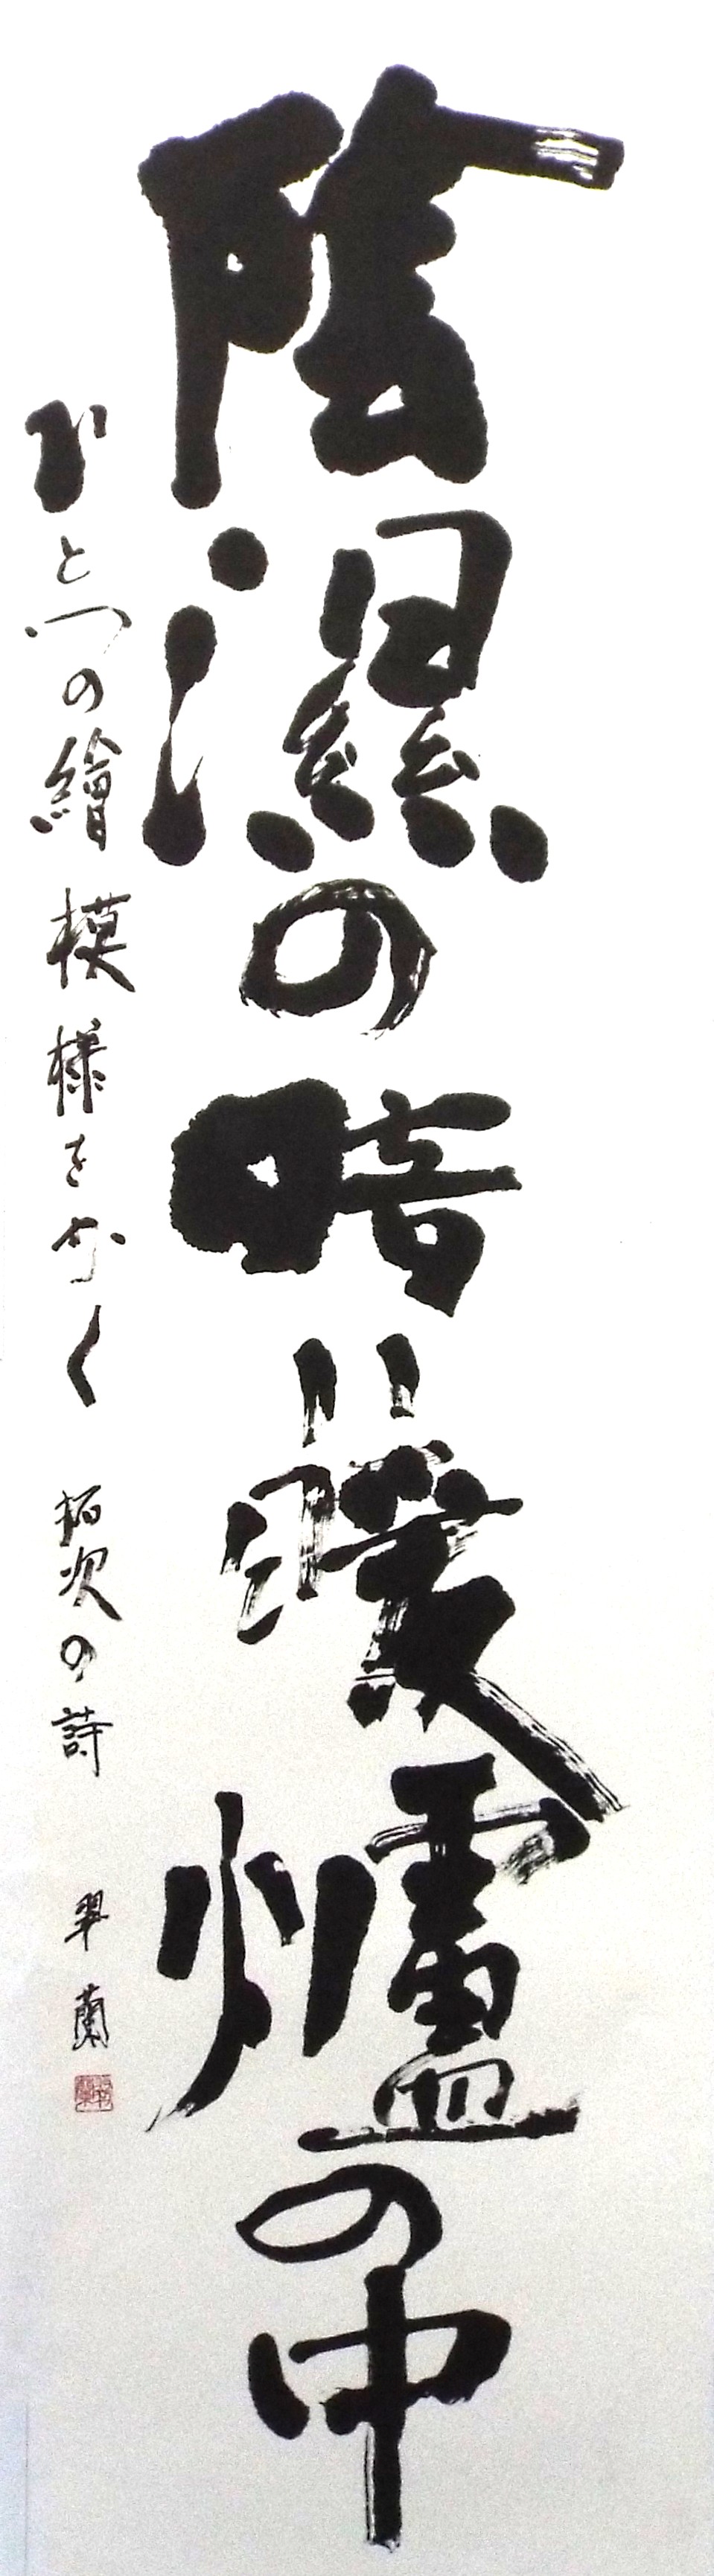 陰濕の暗い暖爐の中
ひとつの繪模様をかく　拓次の詩　翠蘭